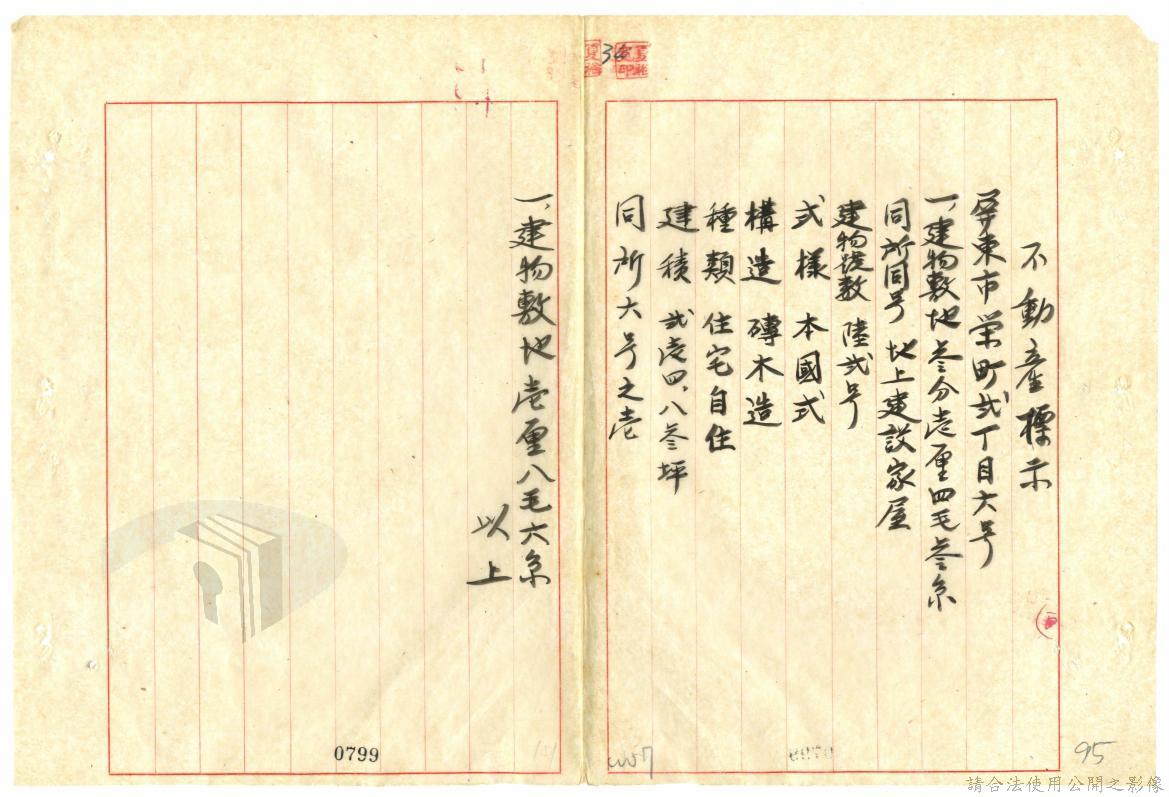 不動產標示
屏東市栄町弐丁目六号
一、建物敷地叁分壱厘四毛叁糸
同所同号 地上建設家屋
建物號数 陸弐号
式樣 本國式
構造 磚木造
種類 住宅自住
建積 弐壱四、八叁坪
同所六号之壱
一、建物敷地壱厘八毛六糸
以上
0799
95
請合法使用公開之影像